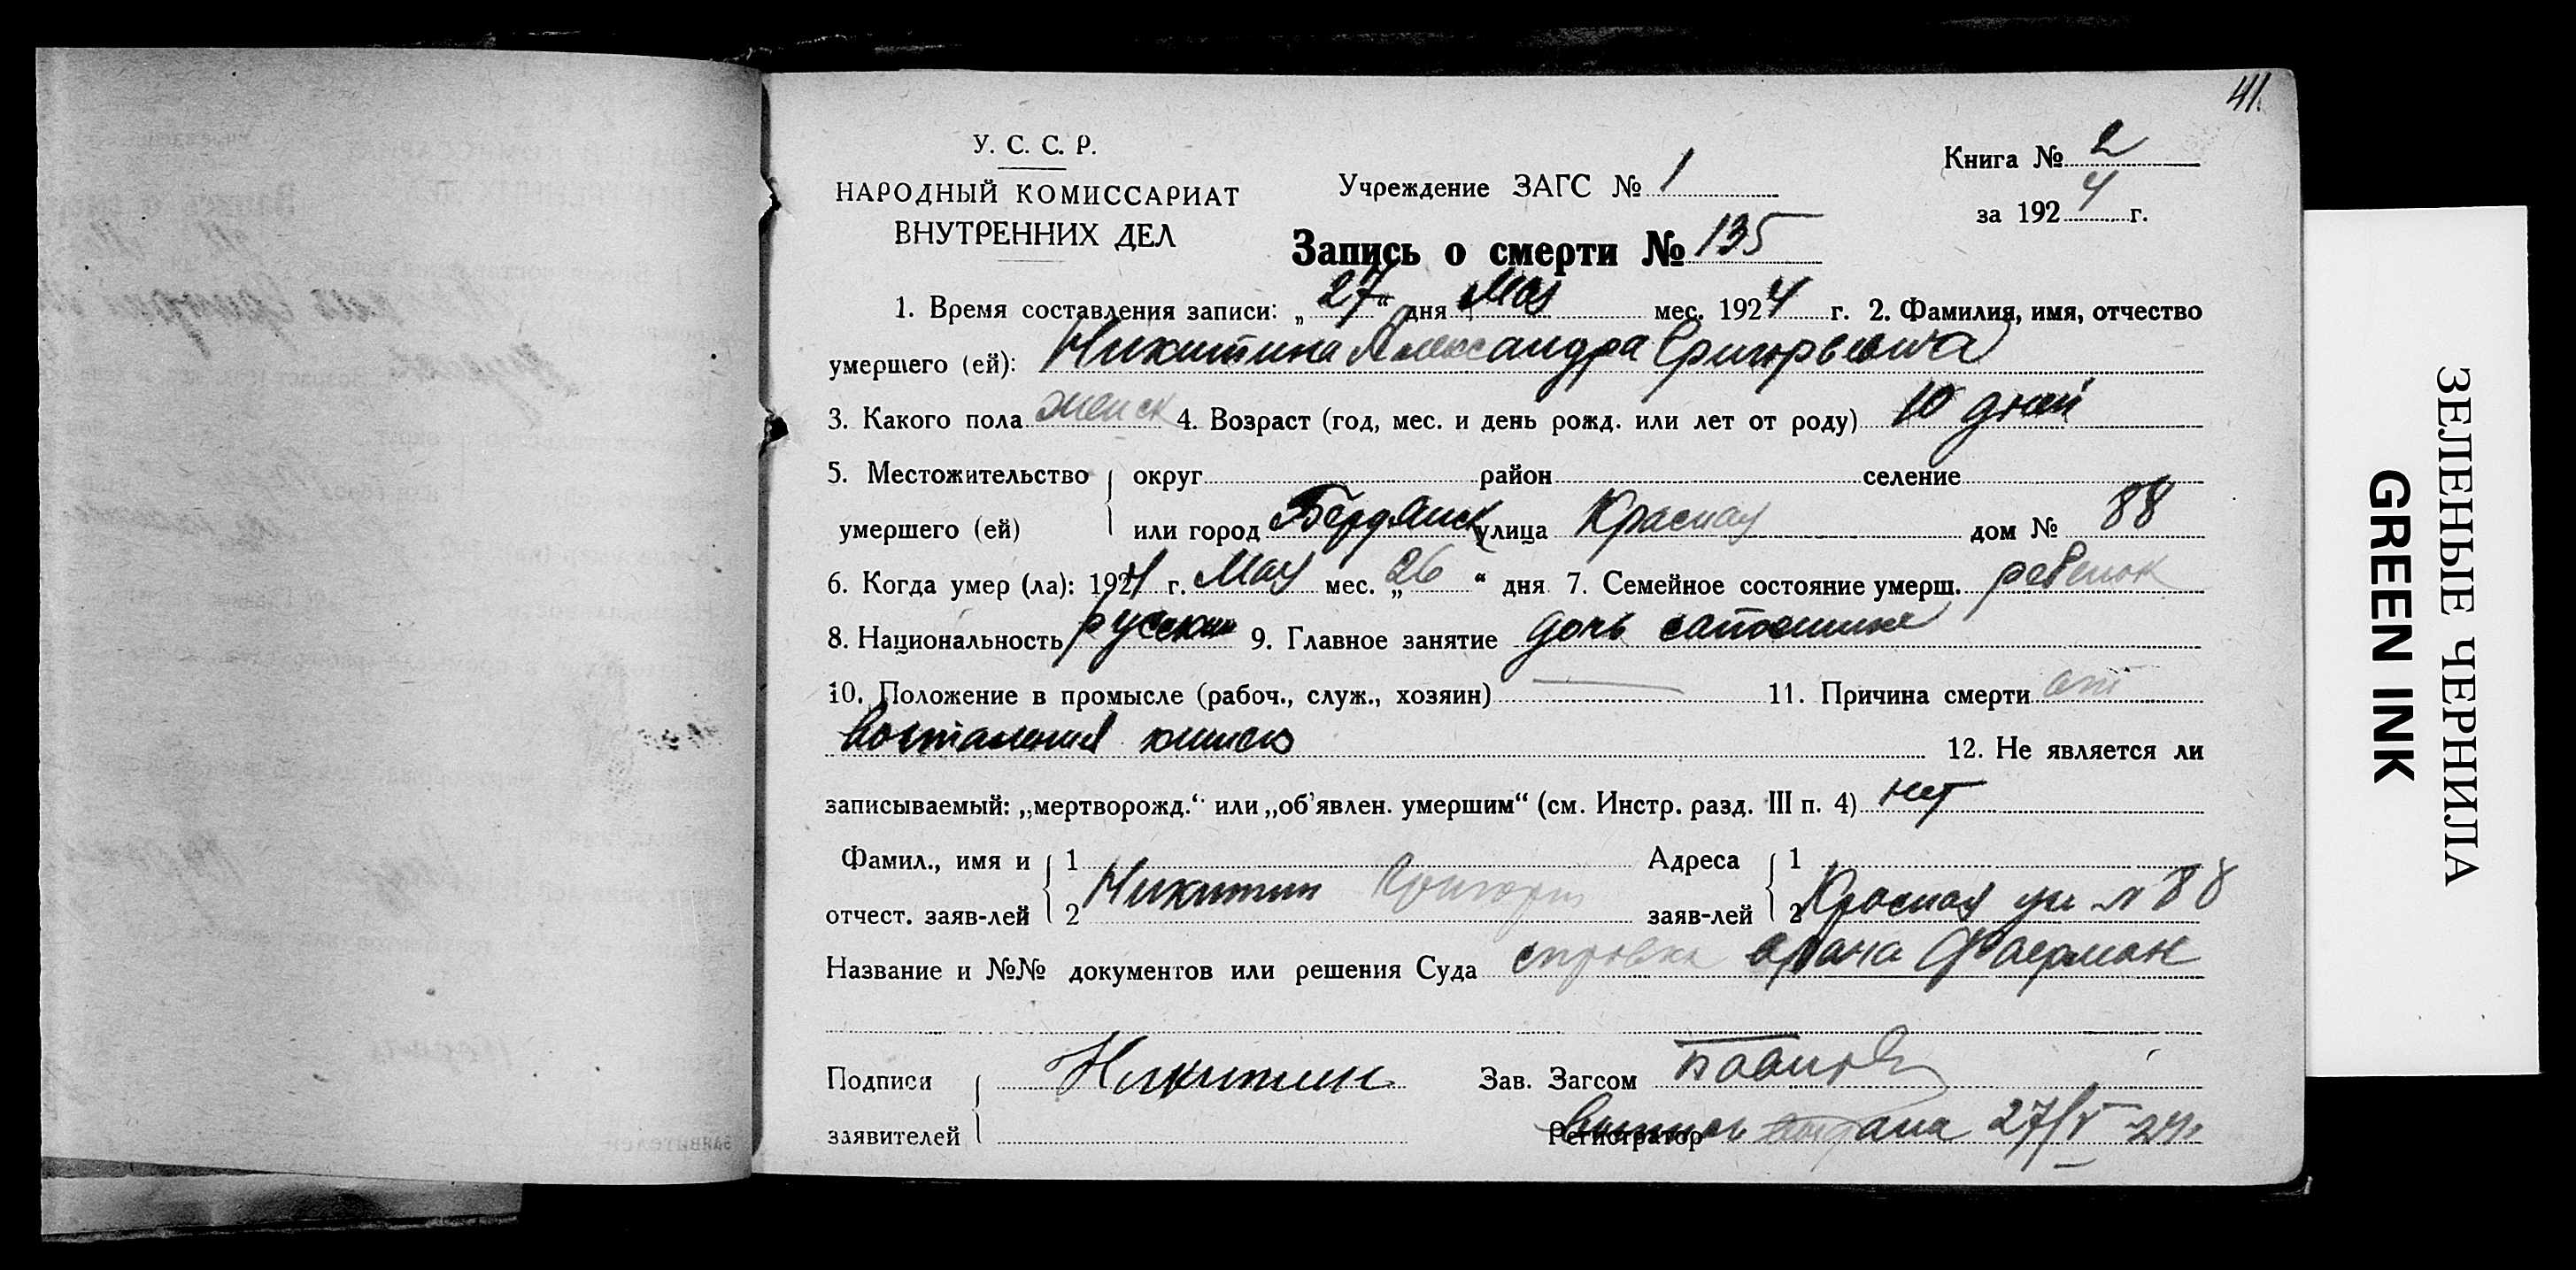 41.
У. С. С. Р.
НАРОДНЫЙ КОМИССАРИАТ
ВНУТРЕННИХ ДЕЛ
Учреждение ЗАГС № 1
Книга № 2
за 1924 г.
Запись о смерти № 135
1. Время составления записи: „27“ дня Мая мес. 1924 г. 2. Фамилия, имя, отчество
умершего (ей): Никитина Александра Григорьевна
3. Какого пола женск 4. Возраст (год, мес. и день рожд. или лет от роду) 10 дней
5. Местожительство округ район селение
умершего (ей) или город Бердянск улица Красная дом № 88
6. Когда умер (ла): 1924 г. Мая мес. „26“ дня 7. Семейное состояние умерш. ребенок
8. Национальность русская 9. Главное занятие дочь сапожника
10. Положение в промысле (рабоч., служ., хозяин) — 11. Причина смерти от
воспаления кишек 12. Не является ли
записываемый: „мертворожд.“ или „об'явлен. умершим“ (см. Инстр. разд. III п. 4) нет
Фамил., имя и 1 Адреса 1
отчест. заяв-лей 2 Никитин Григорий заяв-лей 2 Красная ул № 88
Название и №№ документов или решения Суда справка врача Фаерман
Подписи Никитин Зав. Загсом
заявителей Регистратор 27/V 24.
ЗЕЛЕНЫЕ ЧЕРНИЛА
GREEN INK